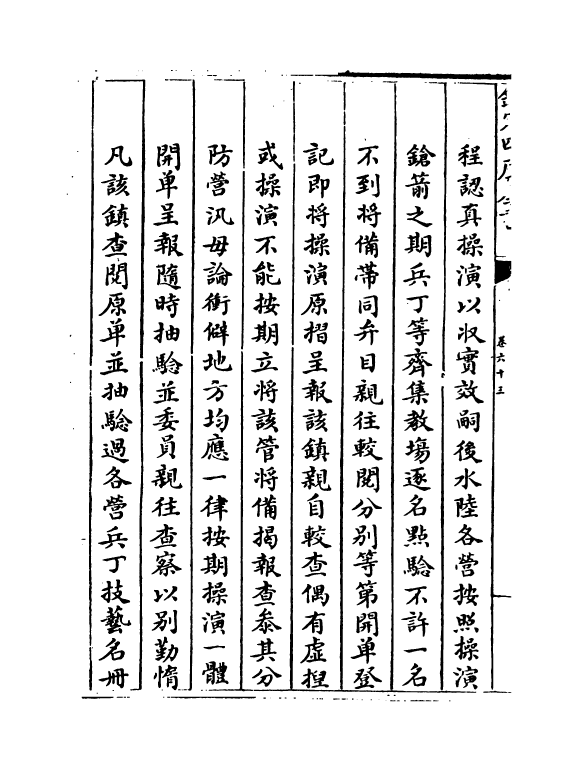 程認真操演以收實效嗣後水陸各營按照操演
鎗箭之期兵丁等齊集教場逐名點驗不許一名
不到將備帶同弁目親往較閱分別等第開單登
記即將操演原摺呈報該鎮親自較查偶有虛捏
或操演不能按期立將該管將備揭報查叅其分
防營汛毋論衝僻地方均應一律按期操演一體
開單呈報隨時抽驗並委員親往查察以別勤惰
凡該鎮查閱原單並抽驗過各營兵丁技藝名冊
卷六十三